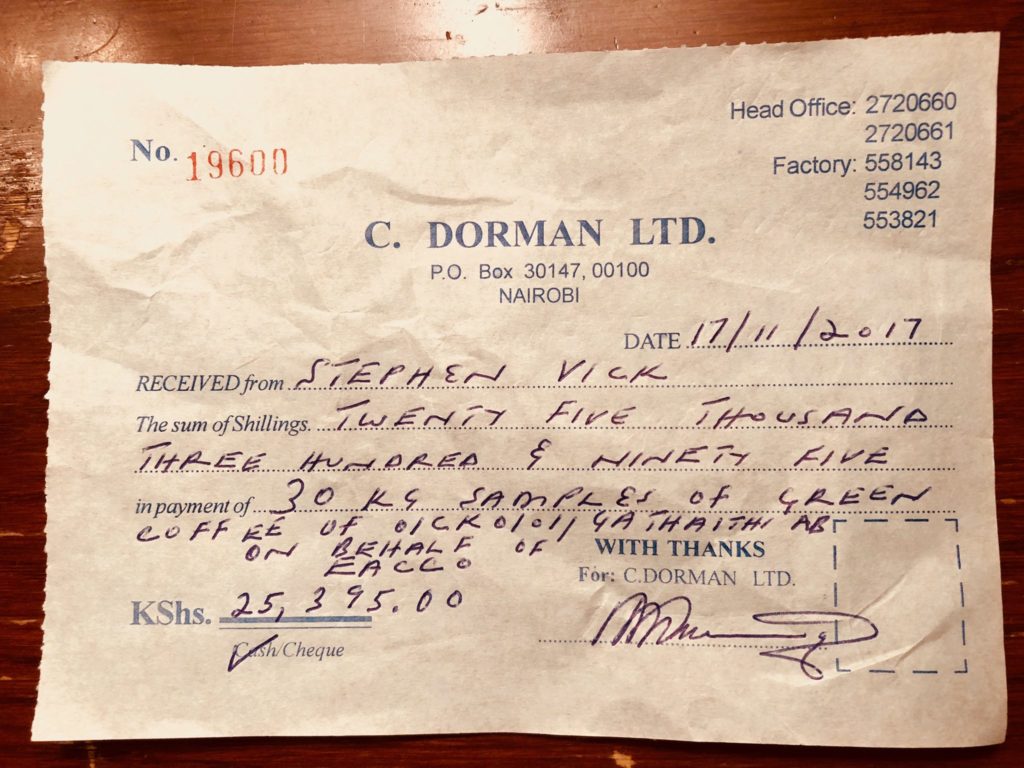 Head Office: 2720660
2720661
No. 19600
Factory: 558143
554962
553821
C. DORMAN LTD.
P.O. Box 30147, 00100
NAIROBI
DATE 17/11/2017
RECEIVED from STEPHEN VICK
The sum of Shillings. TWENTY FIVE THOUSAND
THREE HUNDRED & NINETY FIVE
in payment of 30 KG SAMPLES OF GREEN
COFFEE OF GATHAITHI AB
ON BEHALF OF
EACCO
WITH THANKS
For: C.DORMAN LTD.
KShs. 25,395.00
Cash/Cheque